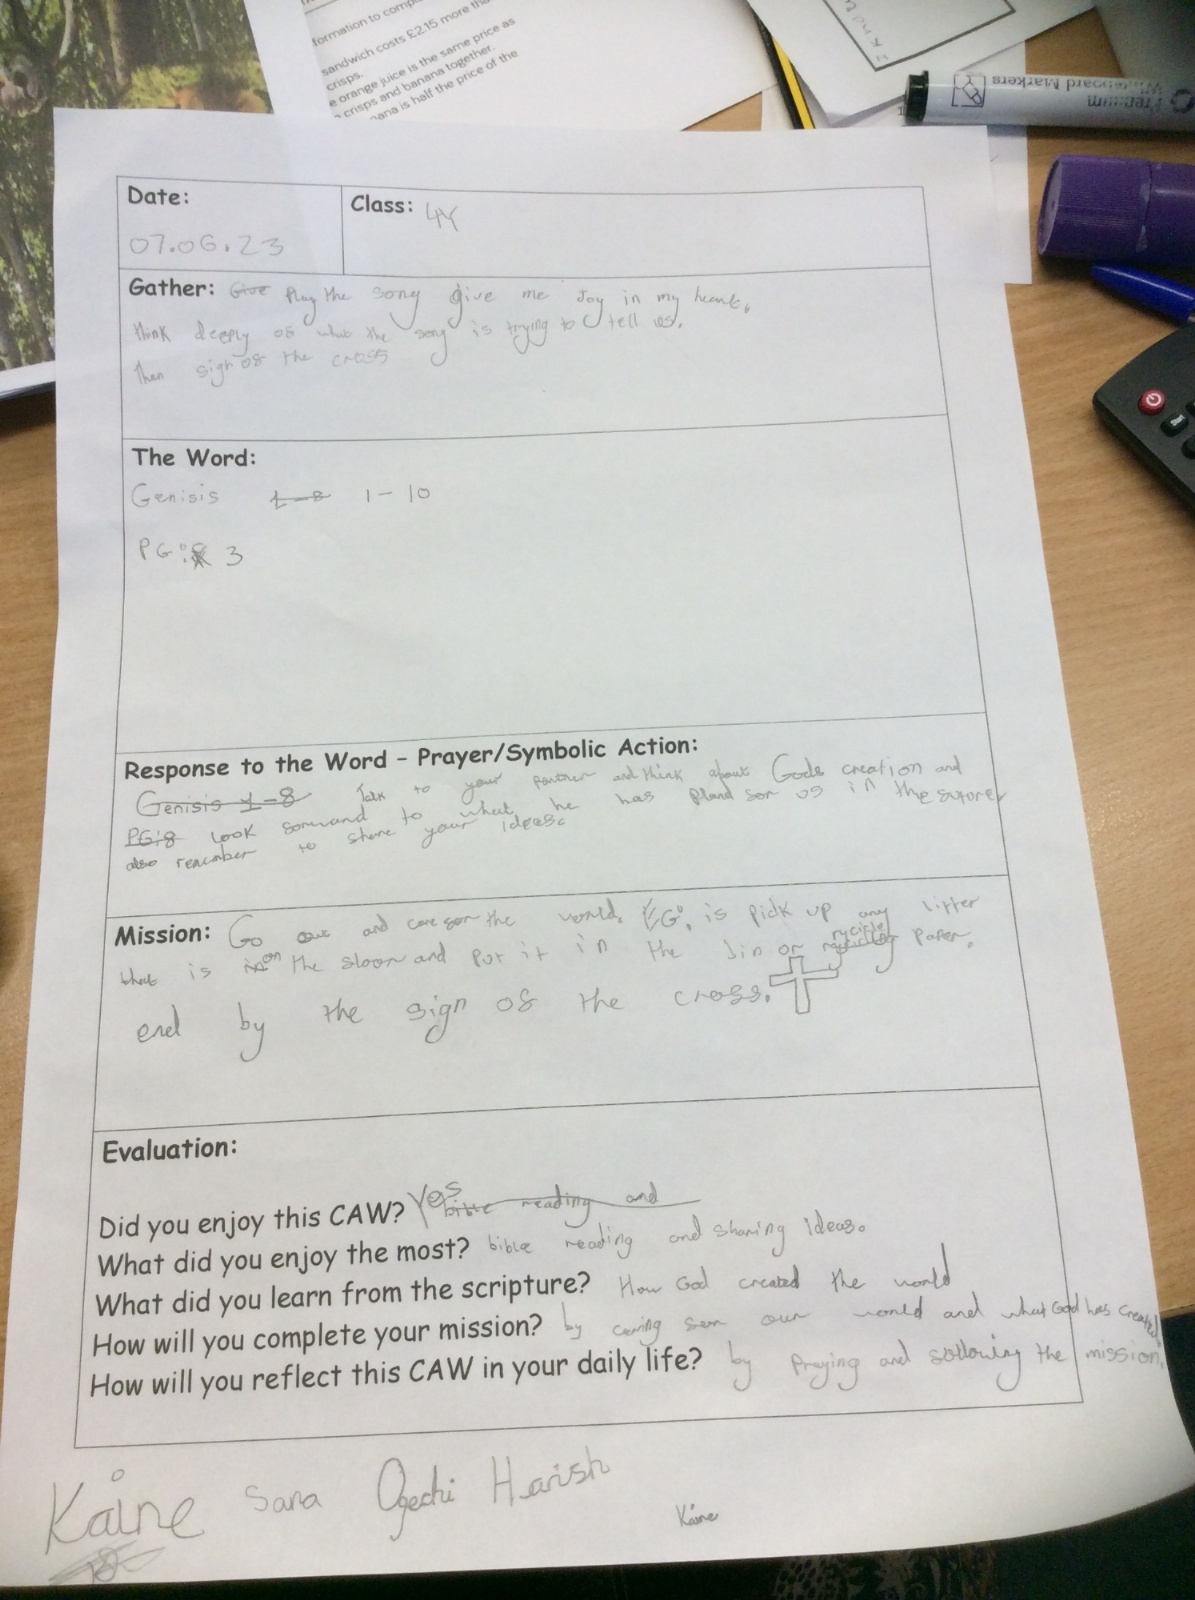 formation to compl
sandwich costs £2.15 more tha
crisps.
e orange juice is the same price as
crisps and banana together.
ana is half the price of the
Premium
Whiteboard Markers
Date:
07.06.23
Class: 4Y
Gather: Give Play the song give me Joy in my heart,
think deeply of what the song is trying to tell us.
then sign of the cross
The Word:
Genisis 1-8 1-10
PG: 3
Response to the Word - Prayer/Symbolic Action:
Genisis 1-8 Talk to your partner and think about Gods creation and
PG:8 look forward to what he has pland for us in the future,
also remember to share your ideas.
Mission: Go out and care for the world. EG. is pick up any litter
that is in on the floor and put it in the bin or rycicle paper.
end by the sign of the cross.
Evaluation:
Did you enjoy this CAW? Yes bible reading and
What did you enjoy the most? bible reading and sharing ideas.
What did you learn from the scripture? How God created the world
How will you complete your mission? by caring for our world and what God has created
How will you reflect this CAW in your daily life? by praying and following the mission.
Kaine Sara Ogechi Harish
Kaine